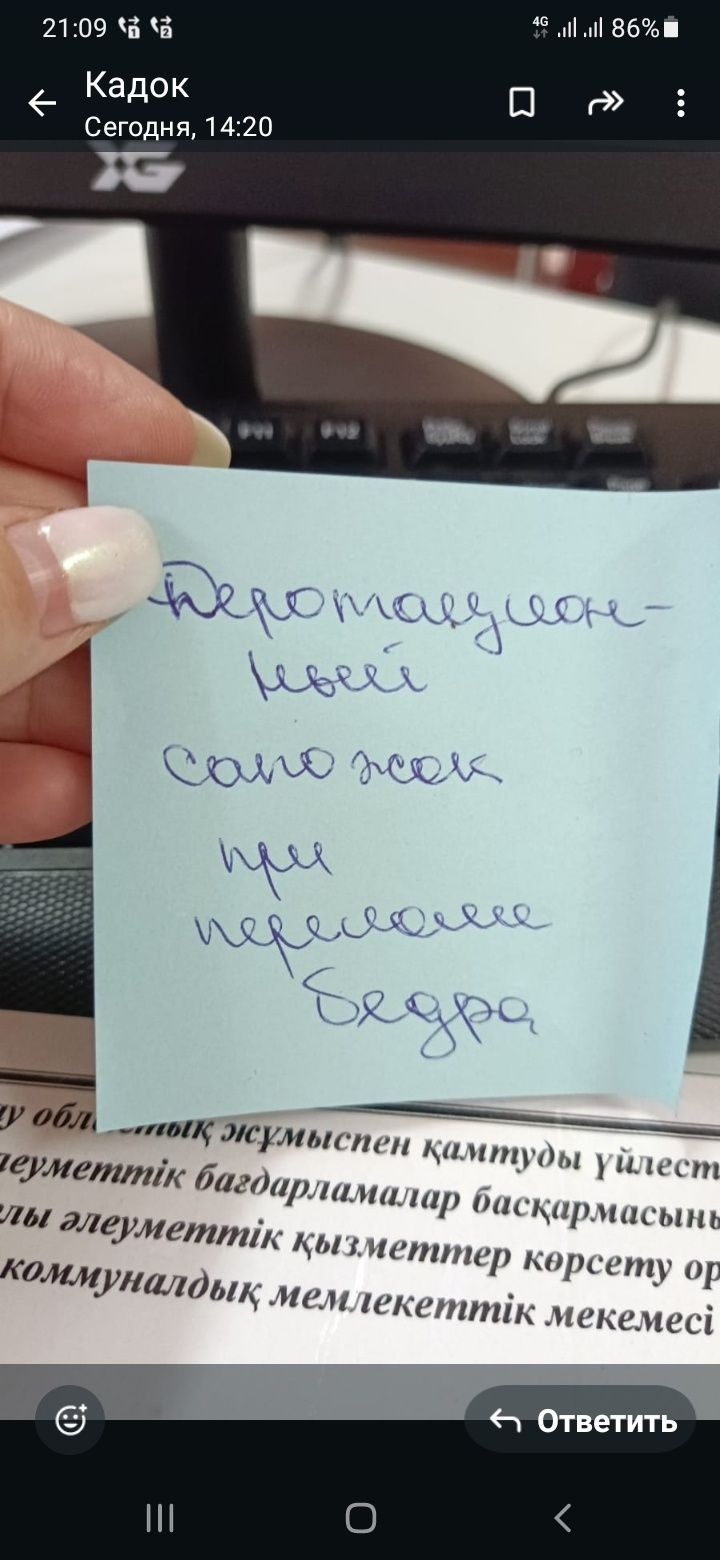 21:09 4G 86%
Кадок
Сегодня, 14:20
XG
F11 F12
Деротацион-
ный
сапожок
при
переломе
бедра
жұмыспен қамтуды үйлест
леуметтік бағдарламалар басқармасыны
лы әлеуметтік қызметтер көрсету ор
коммуналдық мемлекеттік мекемесі
Ответить